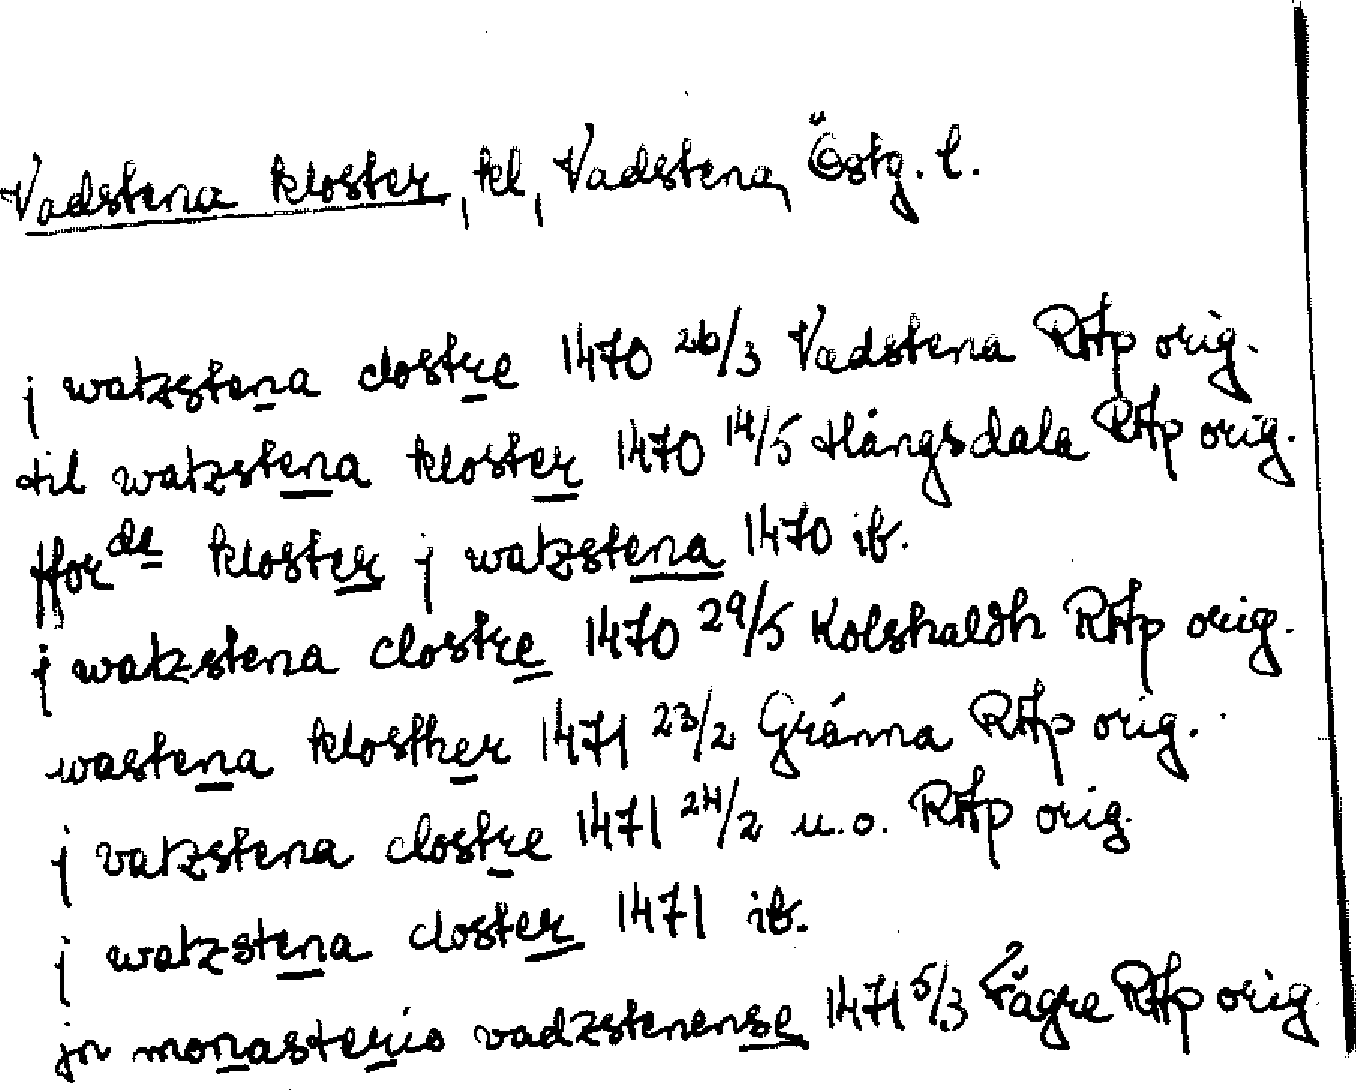 Vadstena kloster, kl, Vadstena, Östg. l.
j watzstena clostre 1470 26/3 Vadstena RAp orig.
til watzstena kloster 1470 14/5 Hångsdala RAp orig.
ffor de kloster j watzstena 1470 ib.
j watzstena clostre 1470 29/5 Kolshaldh RAp orig.
wastena klosther 1471 23/2 Gränna RAp orig.
j vatzstena clostre 1471 24/2 u.o. RAp orig.
j watzstena closter 1471 ib.
jn monasterio vadzstenense 1471 5/3 Fägre RAp orig